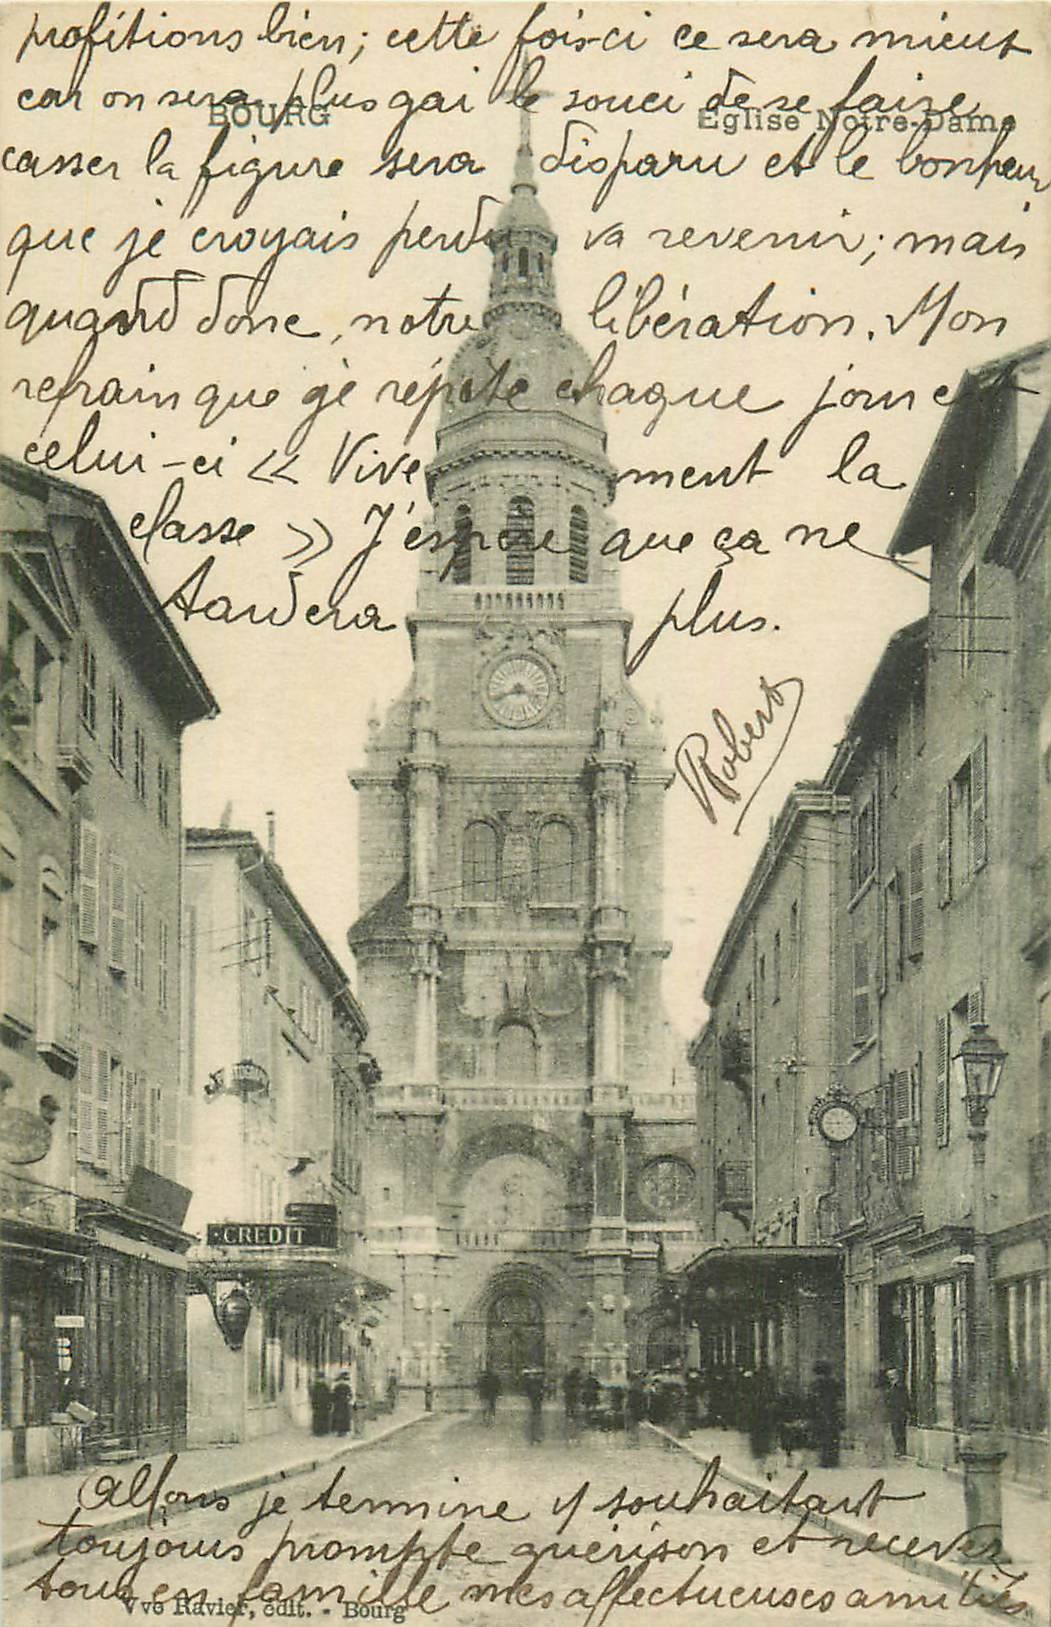 profitions bien; cette fois-ci ce sera mieux
car on sera plus gai le souci de se faire
BOURG
Eglise Notre-Dame
casser la figure sera disparu et le bonheur
que je croyais perdu va revenir; mais
quand donc, notre libération. Mon
refrain que je répète chaque jour est
celui-ci « Vivement la
classe » J'espère que ça ne
tardera plus.
Robert
CREDIT
Allons je termine y souhaitant
toujours prompte guérison et recevez
tous en famille mes affectueuses amitiés
Vve Ravier, édit. - Bourg